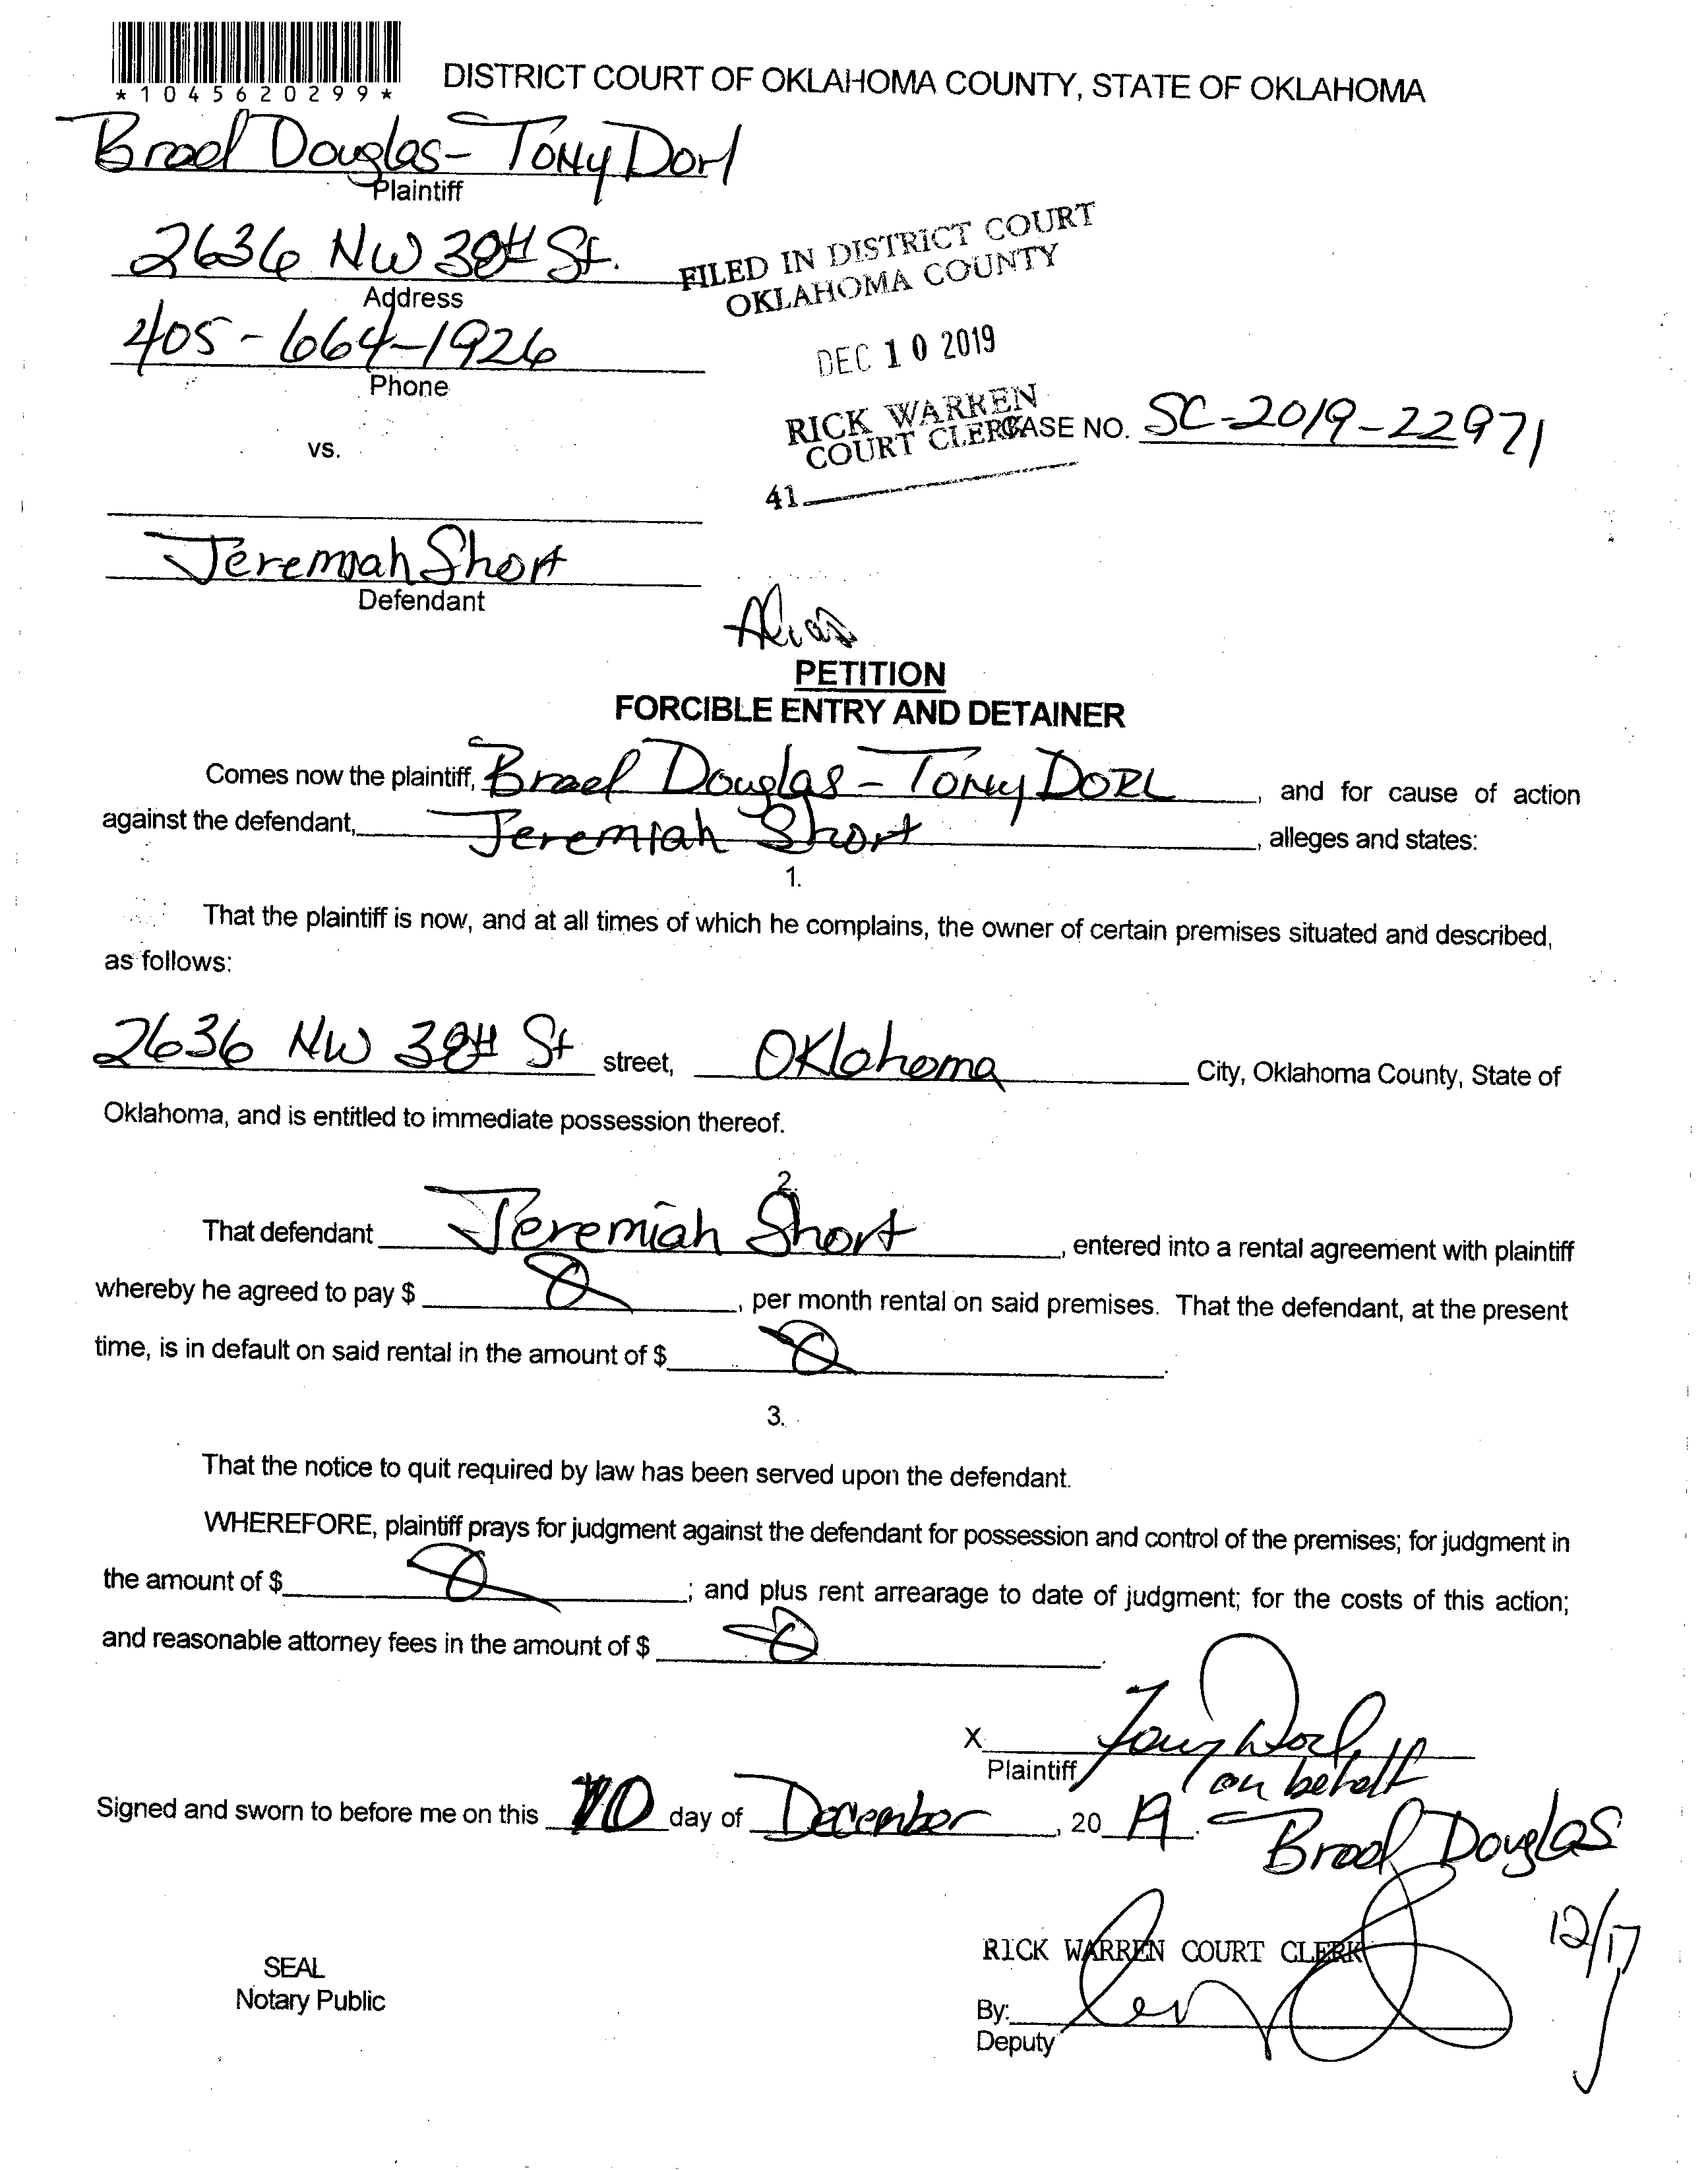 *1045620299*
DISTRICT COURT OF OKLAHOMA COUNTY, STATE OF OKLAHOMA
Brad Douglas - Tony Dorl
Plaintiff
2636 NW 38th St.
Address
405-664-1926
Phone
FILED IN DISTRICT COURT
OKLAHOMA COUNTY
DEC 10 2019
RICK WARREN
COURT CLERK
41
CASE NO. SC-2019-22971
vs.
Jeremiah Short
Defendant
Alias
PETITION
FORCIBLE ENTRY AND DETAINER
Comes now the plaintiff, Brad Douglas - Tony DORL, and for cause of action
against the defendant, Jeremiah Short, alleges and states:
1.
That the plaintiff is now, and at all times of which he complains, the owner of certain premises situated and described,
as follows:
2636 NW 38th St street, Oklahoma City, Oklahoma County, State of
Oklahoma, and is entitled to immediate possession thereof.
2.
That defendant Jeremiah Short, entered into a rental agreement with plaintiff
whereby he agreed to pay $ 0, per month rental on said premises. That the defendant, at the present
time, is in default on said rental in the amount of $ 0.
3.
That the notice to quit required by law has been served upon the defendant.
WHEREFORE, plaintiff prays for judgment against the defendant for possession and control of the premises; for judgment in
the amount of $ 0; and plus rent arrearage to date of judgment; for the costs of this action;
and reasonable attorney fees in the amount of $ 0.
X Tony Dorl
Plaintiff
on behalf
Brad Douglas
Signed and sworn to before me on this 10 day of December, 2019.
12/17
RICK WARREN COURT CLERK
SEAL
Notary Public
By:
Deputy